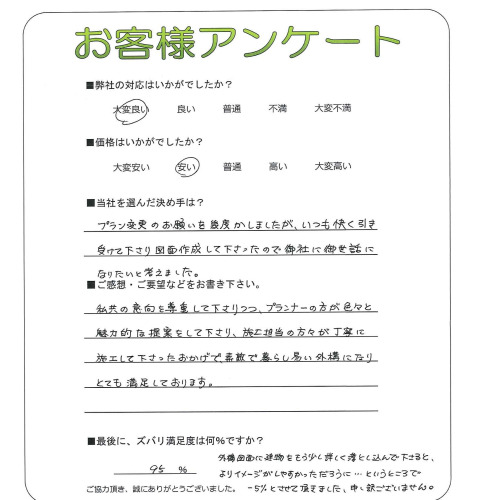 お客様アンケート
■弊社の対応はいかがでしたか？
大変良い 良い 普通 不満 大変不満
■価格はいかがでしたか？
大変安い 安い 普通 高い 大変高い
■当社を選んだ決め手は？
プラン変更のお願いを幾度かしましたが、いつも快く引き
受けて下さり図面作成して下さったので御社に御世話に
なりたいと考えました。
■ご感想・ご要望などをお書き下さい。
私共の意向を尊重して下さりつつ、プランナーの方が色々と
魅力的な提案をして下さり、施工担当の方々が丁寧に
施工して下さったおかげで、素敵で暮らし易い外構になり
とても満足しております。
■最後に、ズバリ満足度は何%ですか？
95 %
外構図面に建物をもう少し詳しく落とし込んで下さると、
よりイメージがしやすかっただろうに…というところで
-5%とさせて頂きました、申し訳ございません。
ご協力頂き、誠にありがとうございました。